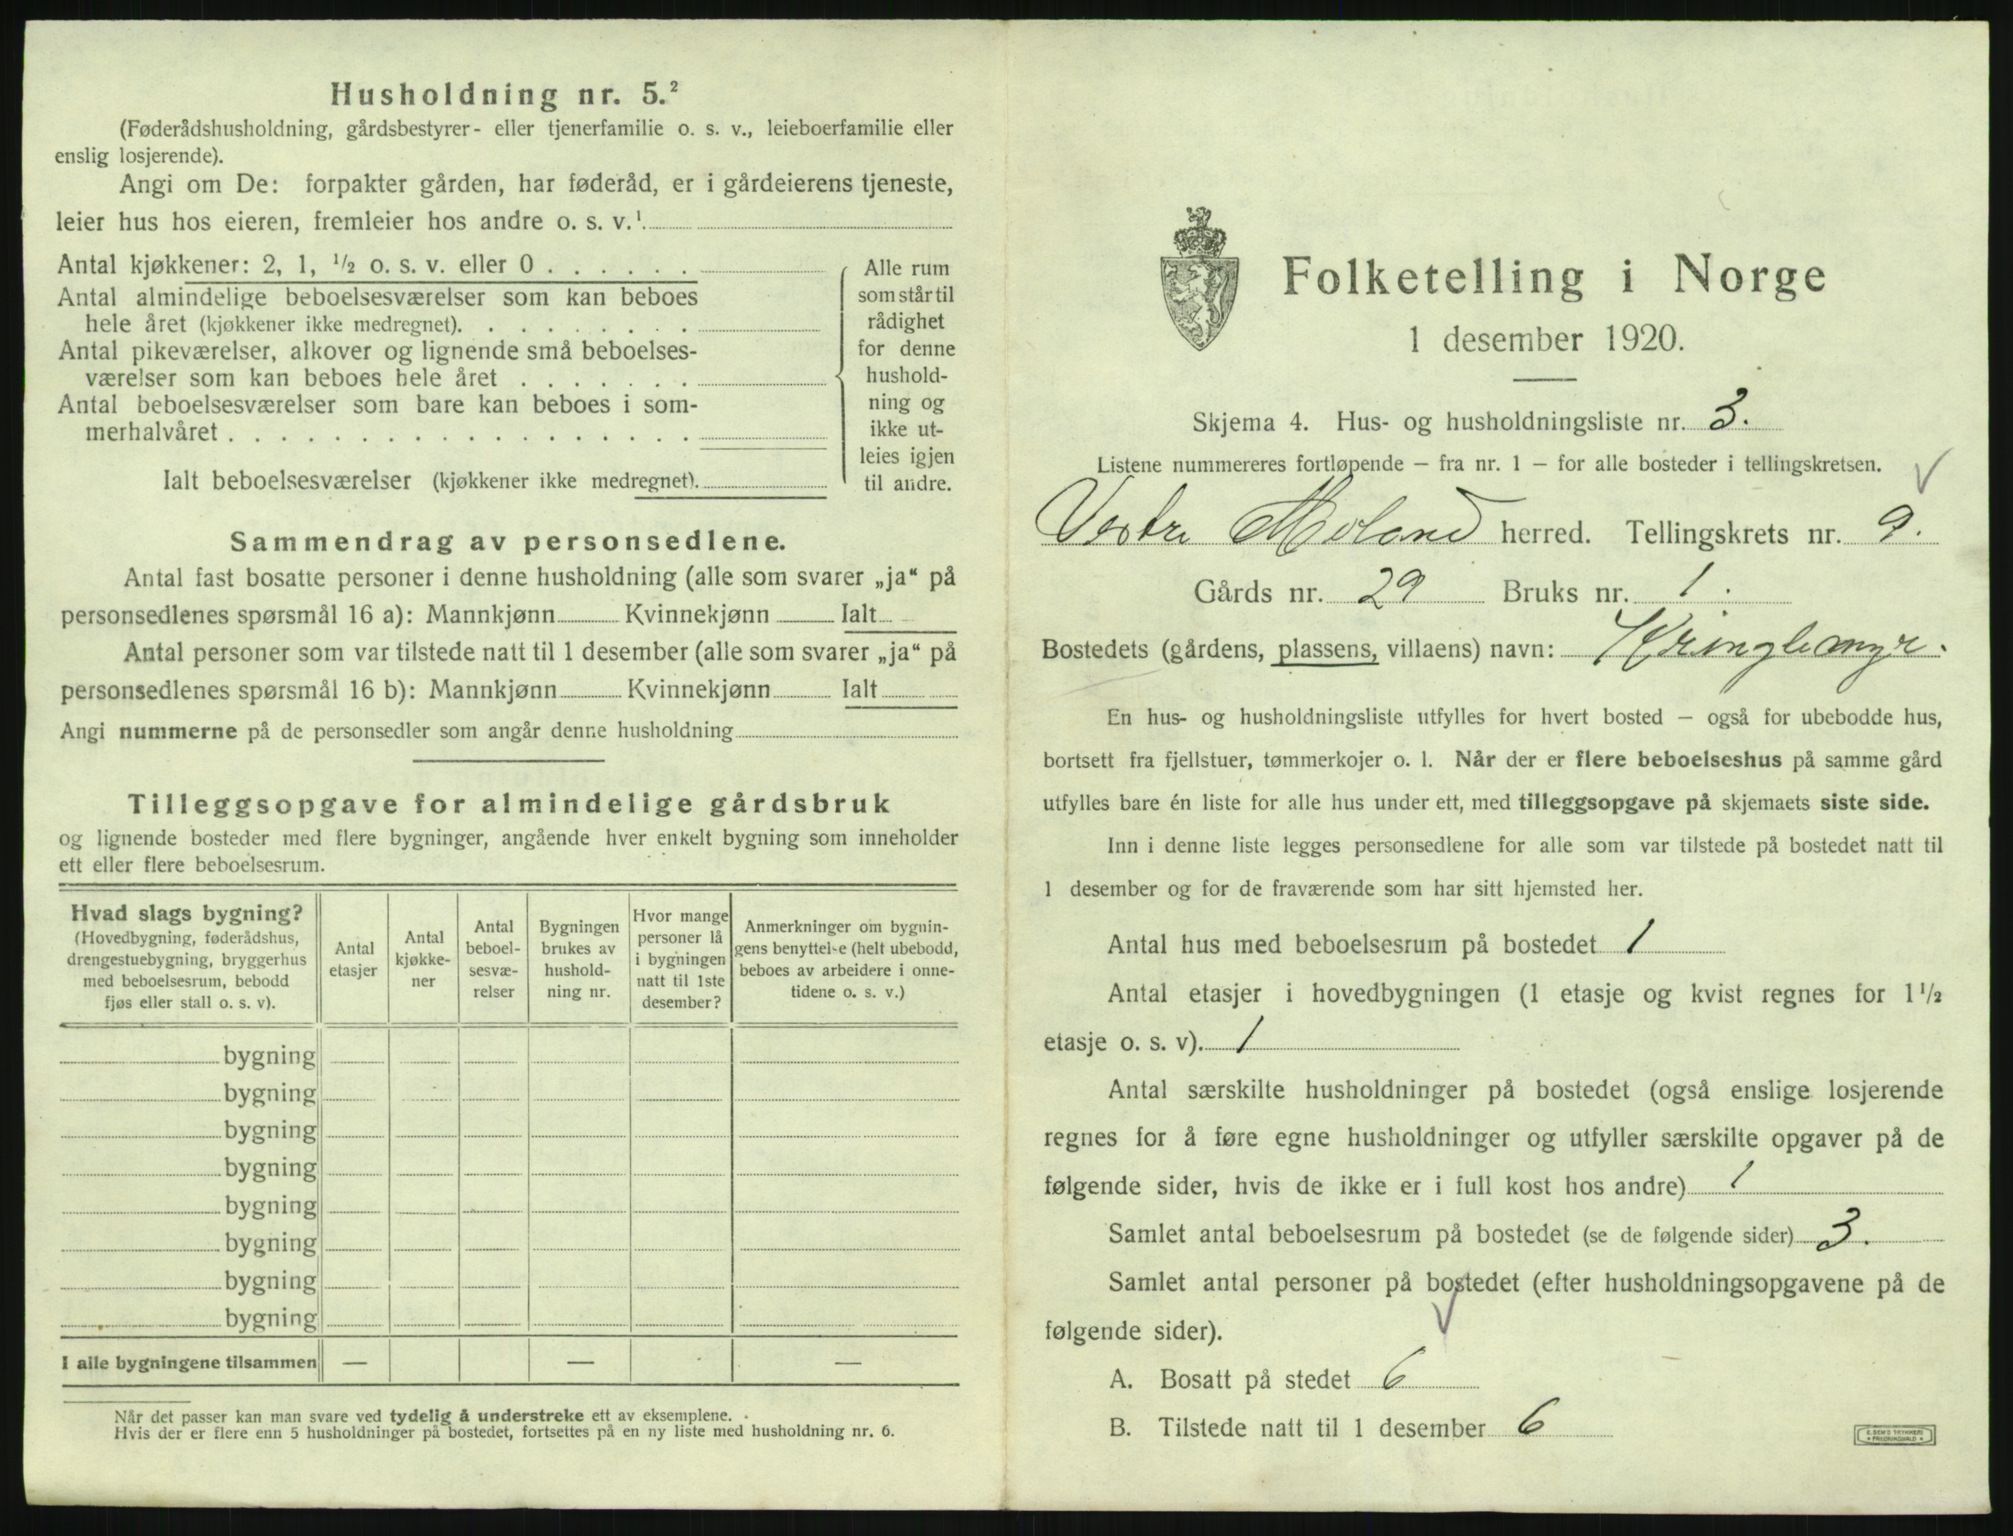 Husholdning nr. 5.²
(Føderådshusholdning, gårdsbestyrer- eller tjenerfamilie o. s. v., leieboerfamilie eller
enslig losjerende).
Angi om De: forpakter gården, har føderåd, er i gårdeierens tjeneste,
leier hus hos eieren, fremleier hos andre o. s. v.¹
Antal kjøkkener: 2, 1, ½ o. s. v. eller 0 . . . . . .
Antal almindelige beboelsesværelser som kan beboes
hele året (kjøkkener ikke medregnet). . . . . . . . .
Antal pikeværelser, alkover og lignende små beboelses-
værelser som kan beboes hele året . . . . . . .
Antal beboelsesværelser som bare kan beboes i som-
merhalvåret . . . . . . . . . . . . . . . . . .
Ialt beboelsesværelser (kjøkkener ikke medregnet).
Alle rum
som står til
rådighet
for denne
hushold-
ning og
ikke ut-
leies igjen
til andre.
Sammendrag av personsedlene.
Antal fast bosatte personer i denne husholdning (alle som svarer „ja“ på
personsedlenes spørsmål 16 a): Mannkjønn Kvinnekjønn Ialt
Antal personer som var tilstede natt til 1 desember (alle som svarer „ja“ på
personsedlenes spørsmål 16 b): Mannkjønn Kvinnekjønn Ialt
Angi nummerne på de personsedler som angår denne husholdning
Tilleggsopgave for almindelige gårdsbruk
og lignende bosteder med flere bygninger, angående hver enkelt bygning som inneholder
ett eller flere beboelsesrum.
Hvad slags bygning?
(Hovedbygning, føderådshus,
drengestuebygning, bryggerhus
med beboelsesrum, bebodd
fjøs eller stall o. s. v).
Antal
etasjer
Antal
kjøkke-
ner
Antal
beboel-
sesvæ-
relser
Bygningen
brukes av
hushold-
ning nr.
Hvor mange
personer lå
i bygningen
natt til 1ste
desember?
Anmerkninger om bygnin-
gens benyttelse (helt ubebodd,
beboes av arbeidere i onne-
tidene o. s. v.)
bygning
bygning
bygning
bygning
bygning
bygning
bygning
bygning
I alle bygningene tilsammen — — —
Når det passer kan man svare ved tydelig å understreke ett av eksemplene.
Hvis der er flere enn 5 husholdninger på bostedet, fortsettes på en ny liste med husholdning nr. 6.
Folketelling i Norge
1 desember 1920.
Skjema 4. Hus- og husholdningsliste nr. 3.
Listene nummereres fortløpende — fra nr. 1 — for alle bosteder i tellingskretsen.
Vestre Moland herred. Tellingskrets nr. 9.
Gårds nr. 29 Bruks nr. 1.
Bostedets (gårdens, plassens, villaens) navn: Kringlemyr.
En hus- og husholdningsliste utfylles for hvert bosted — også for ubebodde hus,
bortsett fra fjellstuer, tømmerkojer o. l. Når der er flere beboelseshus på samme gård
utfylles bare én liste for alle hus under ett, med tilleggsopgave på skjemaets siste side.
Inn i denne liste legges personsedlene for alle som var tilstede på bostedet natt til
1 desember og for de fraværende som har sitt hjemsted her.
Antal hus med beboelsesrum på bostedet 1
Antal etasjer i hovedbygningen (1 etasje og kvist regnes for 1½
etasje o. s. v). 1
Antal særskilte husholdninger på bostedet (også enslige losjerende
regnes for å føre egne husholdninger og utfyller særskilte opgaver på de
følgende sider, hvis de ikke er i full kost hos andre) 1
Samlet antal beboelsesrum på bostedet (se de følgende sider) 3.
Samlet antal personer på bostedet (efter husholdningsopgavene på de
følgende sider).
A. Bosatt på stedet 6
B. Tilstede natt til 1 desember 6